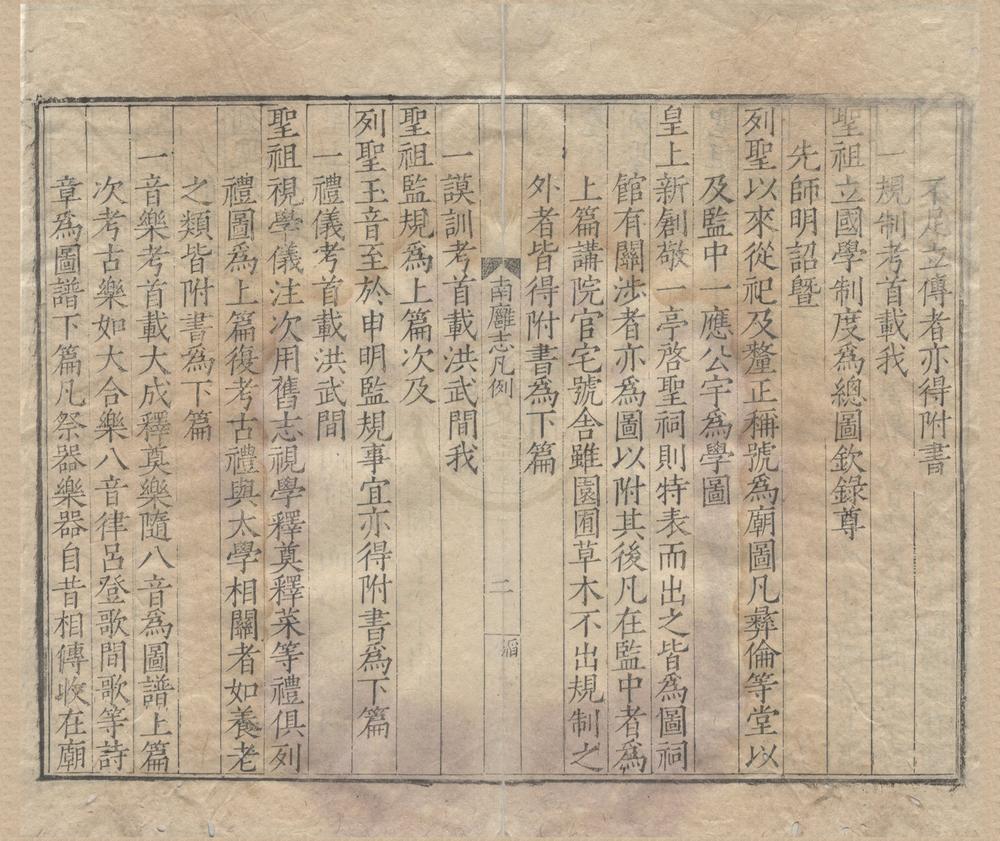 不足立傳者亦得附書
一規制考首載我
聖祖立國學制度為總圖欽錄尊
先師明詔暨
列聖以來從祀及釐正稱號為廟圖凡彝倫等堂以
及監中一應公宇為學圖
皇上新創敬一亭啓聖祠則特表而出之皆為圖祠
館有關涉者亦為圖以附其後凡在監中者為
上篇講院官宅號舍雖園囿草木不出規制之
外者皆得附書為下篇
南廱志凡例
二
稻
一謨訓考首載洪武間我
聖祖監規為上篇次及
列聖玉音至於申明監規事宜亦得附書為下篇
一禮儀考首載洪武間
聖祖視學儀注次用舊志視學釋奠釋菜等禮俱列
禮圖為上篇復考古禮與太學相關者如養老
之類皆附書為下篇
一音樂考首載大成釋奠樂隨八音為圖譜上篇
次考古樂如大合樂八音律呂登歌間歌等詩
章為圖譜下篇凡祭器樂器自昔相傳收在廟